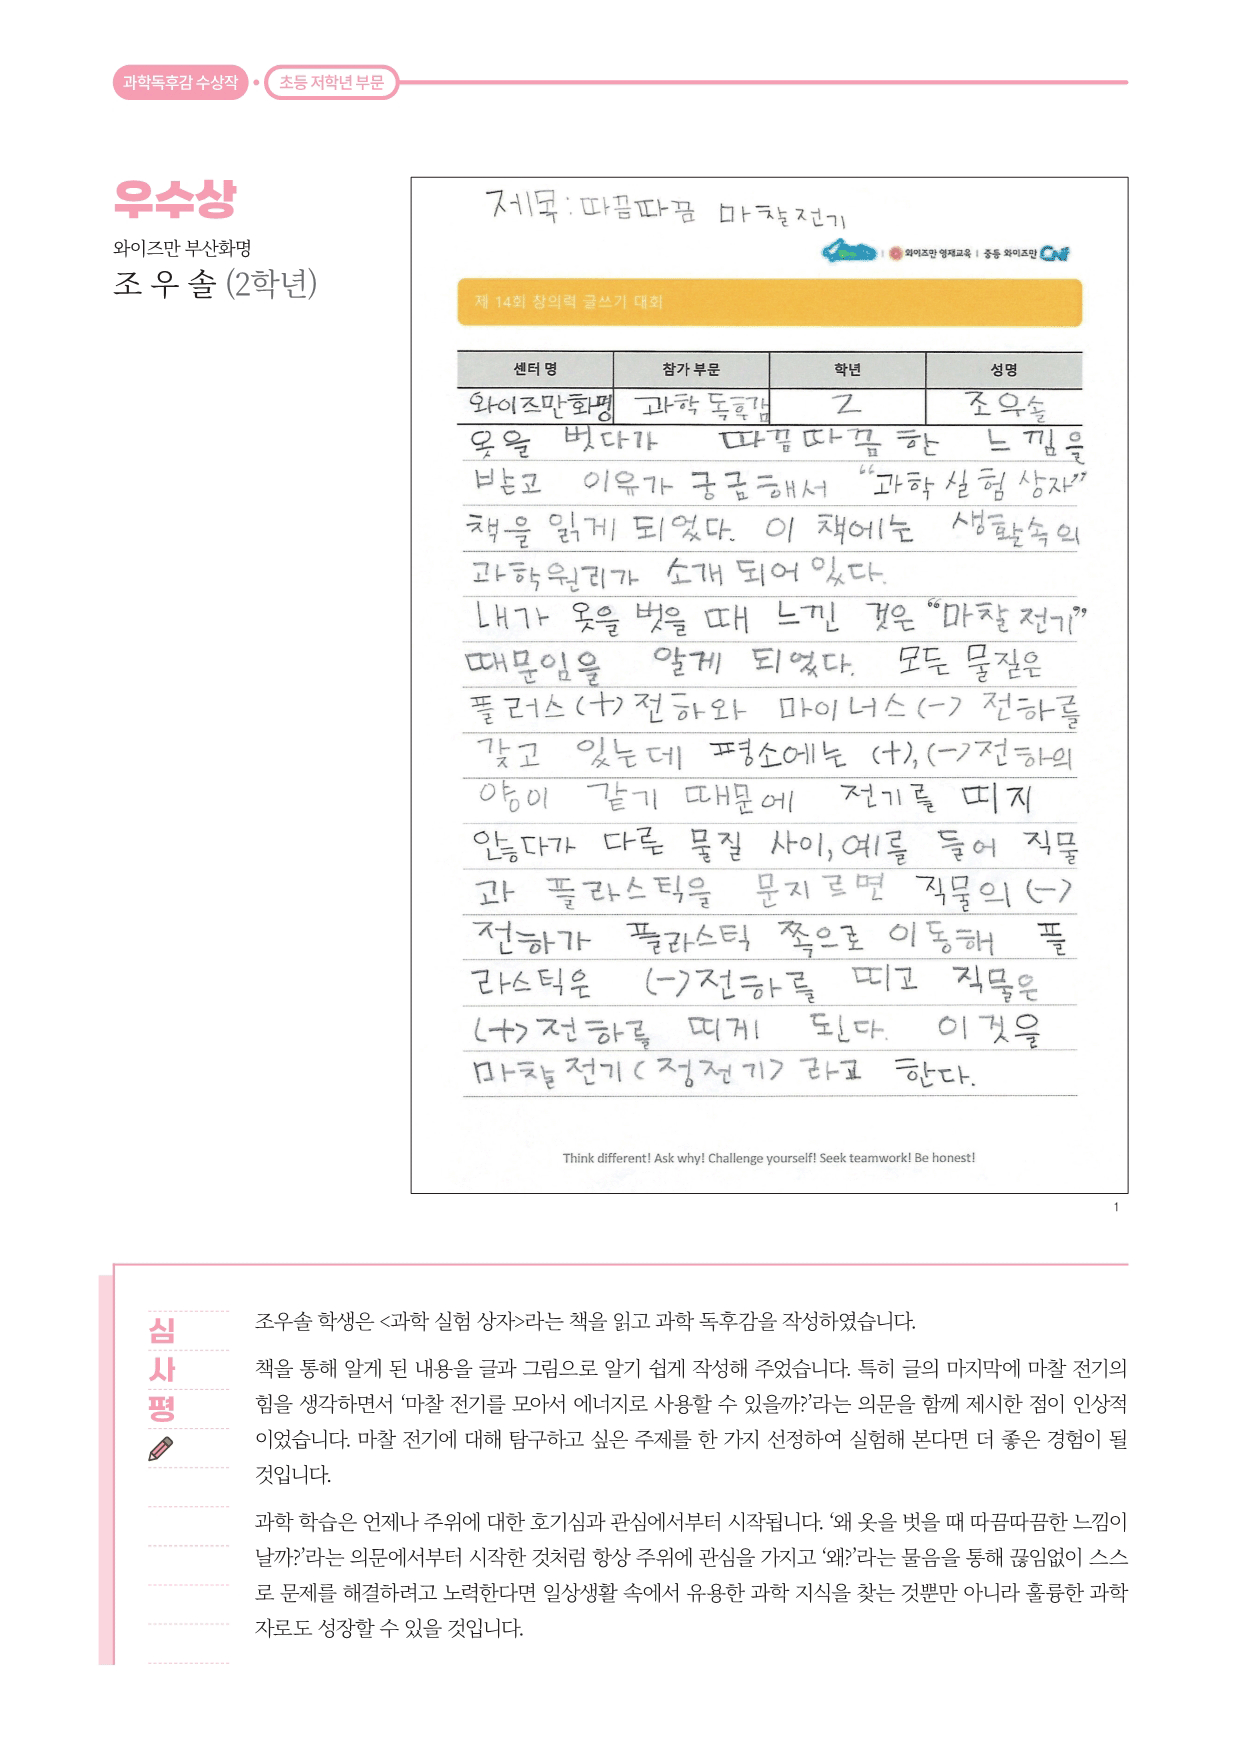 과학독후감 수상작 • 초등 저학년 부문
우수상
와이즈만 부산화명
조우솔 (2학년)
제목 : 따끔따끔 마찰전기
와이즈만 영재교육 | 중등 와이즈만 CNI
제 14회 창의력 글쓰기 대회
센터 명 참가 부문 학년 성명
와이즈만화명 과학 독후감 2 조우솔
옷을 벗다가 따끔따끔한 느낌을
받고 이유가 궁금해서 “과학 실험 상자”
책을 읽게 되었다. 이 책에는 생활속의
과학원리가 소개 되어 있다.
내가 옷을 벗을 때 느낀 것은 “마찰 전기”
때문임을 알게 되었다. 모든 물질은
플러스(+) 전하와 마이너스(-) 전하를
갖고 있는데 평소에는 (+), (-)전하의
양이 같기 때문에 전기를 띠지
않다가 다른 물질 사이, 예를 들어 직물
과 플라스틱을 문지르면 직물의 (-)
전하가 플라스틱 쪽으로 이동해 플
라스틱은 (-)전하를 띠고 직물은
(+)전하를 띠게 된다. 이것을
마찰 전기(정전기) 라고 한다.
Think different! Ask why! Challenge yourself! Seek teamwork! Be honest!
1
심사평
조우솔 학생은 <과학 실험 상자>라는 책을 읽고 과학 독후감을 작성하였습니다.
책을 통해 알게 된 내용을 글과 그림으로 알기 쉽게 작성해 주었습니다. 특히 글의 마지막에 마찰 전기의
힘을 생각하면서 ‘마찰 전기를 모아서 에너지로 사용할 수 있을까?’라는 의문을 함께 제시한 점이 인상적
이었습니다. 마찰 전기에 대해 탐구하고 싶은 주제를 한 가지 선정하여 실험해 본다면 더 좋은 경험이 될
것입니다.
과학 학습은 언제나 주위에 대한 호기심과 관심에서부터 시작됩니다. ‘왜 옷을 벗을 때 따끔따끔한 느낌이
날까?’라는 의문에서부터 시작한 것처럼 항상 주위에 관심을 가지고 ‘왜?’라는 물음을 통해 끊임없이 스스
로 문제를 해결하려고 노력한다면 일상생활 속에서 유용한 과학 지식을 찾는 것뿐만 아니라 훌륭한 과학
자로도 성장할 수 있을 것입니다.